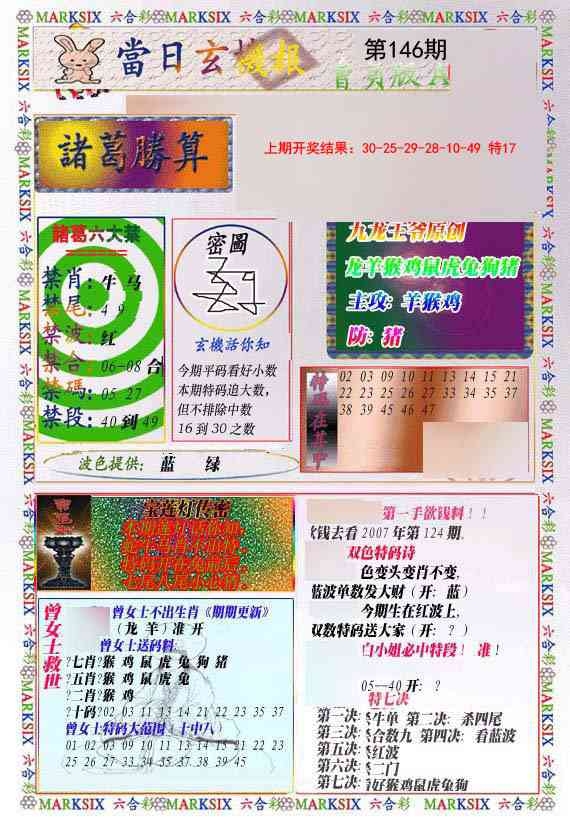 MARKSIX 六合彩 MARKSIX 六合彩 MARKSIX 六合彩 MARKSIX 六合彩 MARKSIX
當日玄機報
第146期
諸葛勝算
上期开奖结果: 30-25-29-28-10-49 特17
諸葛六大禁
禁肖: 牛 马
禁尾: 4 9
禁波: 红
禁合: 06-08 合
禁碼: 05 27
禁段: 40 到 49
密圖
玄機話你知
今期平码看好小数
本期特码追大数,
但不排除中数
16 到 30 之数
九龙王爷原创
龙羊猴鸡鼠虎兔狗猪
主攻: 羊猴鸡
防: 猪
02 03 09 10 11 13 14 15 21
22 23 25 26 27 33 34 35 37
38 39 45 46 47
波色提供: 蓝 绿
宝莲灯传密
曾女士救世
曾女士不出生肖《期期更新》
(龙 羊) 准 开
曾女士送码料:
七肖?猴 鸡 鼠 虎 兔 狗 猪
五肖?猴 鸡 鼠 虎 兔
二肖?猴 鸡
十码?02 03 11 13 14 21 22 23 35 37
曾女士特码大范围〔十中八〕
01 02 03 09 10 11 13 14 15 21 22 23
25 26 27 33 34 35 37 38 39 45
第一手欲钱料!!
欲钱去看 2007 年第 124 期。
双色特码诗
色变头变肖不变,
蓝波单数发大财 (开: 蓝)
今期生在红波上,
双数特码送大家 (开: ? )
白小姐必中特段! 准!
05--40 开: ?
特七决
第一决: 杀牛单 第二决: 杀四尾
第三决: 杀合数九 第四决: 看蓝波
第五决: 杀红波
第六决: 杀二门
第七决: 看好猴鸡鼠虎兔狗
MARKSIX 六合彩 MARKSIX 六合彩 MARKSIX 六合彩 MARKSIX 六合彩 MARKSIX